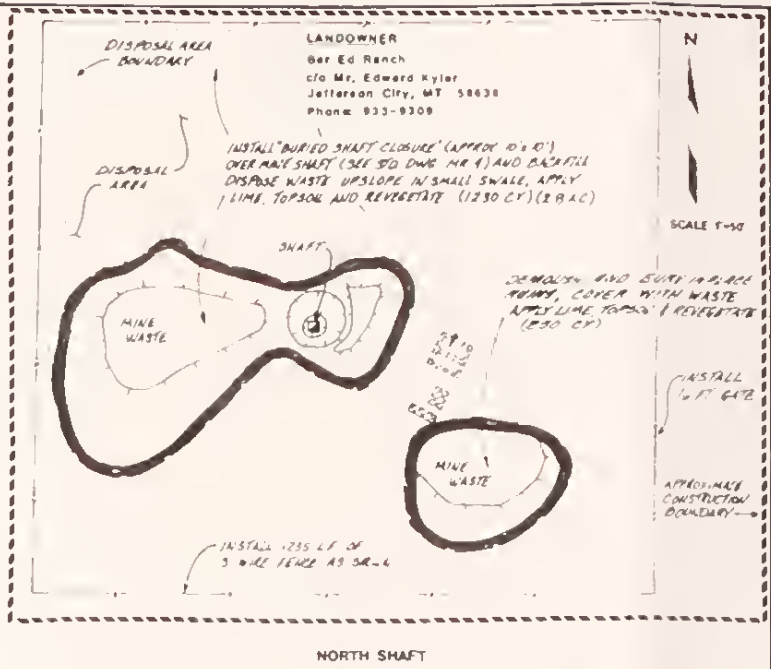 LANDOWNER
Ger Ed Ranch
c/o Mr. Edward Kyler
Jefferson City, MT 58638
Phone: 933-9309
N
DISPOSAL AREA
BOUNDARY
INSTALL "BURIED SHAFT CLOSURE" (APPROX 10'x10')
OVER MINE SHAFT (SEE STD DWG MR 4) AND BACKFILL
DISPOSE WASTE UPSLOPE IN SMALL SWALE, APPLY
LIME, TOPSOIL AND REVEGETATE (1230 CY) (2.8 AC)
DISPOSAL
AREA
SCALE 1"=50'
SHAFT
DEMOLISH AND BURY IN PLACE
COVER WITH WASTE
APPLY LIME, TOPSOIL & REVEGETATE
(830 CY)
MINE
WASTE
INSTALL
16 FT GATE
MINE
WASTE
APPROXIMATE
CONSTRUCTION
BOUNDARY
INSTALL 1235 LF OF
3 WIRE FENCE AS
NORTH SHAFT